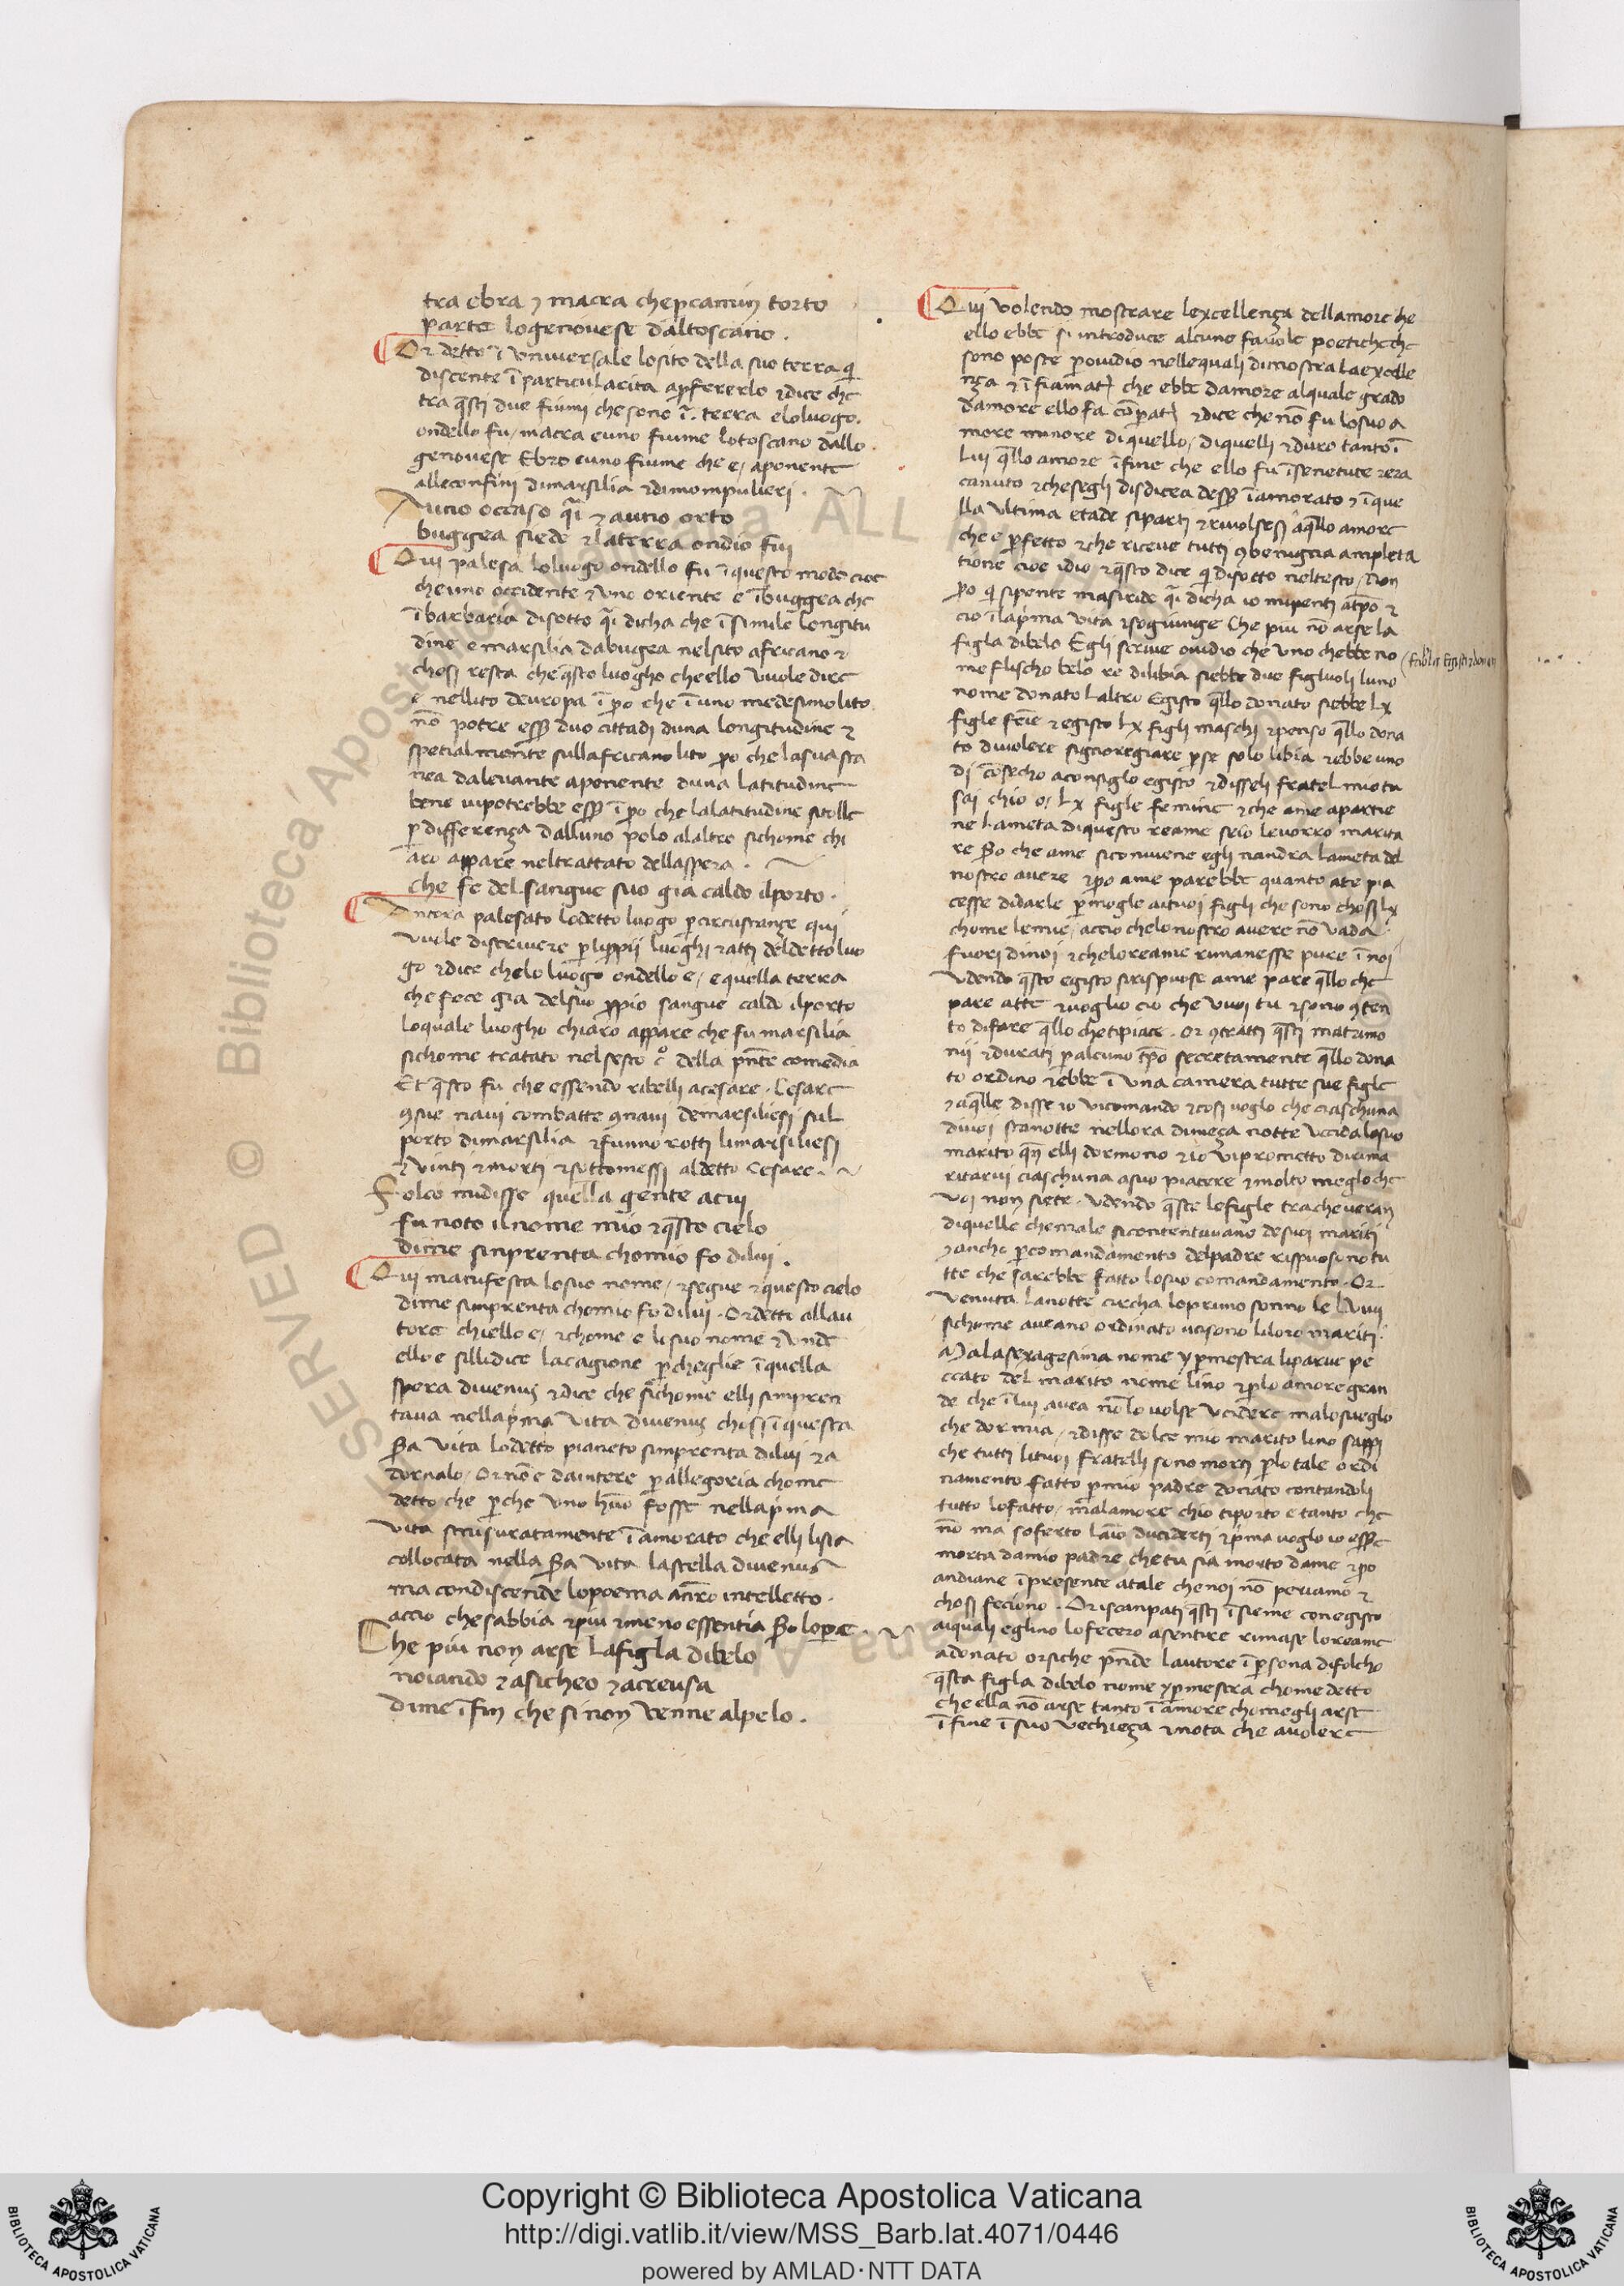 tra ebra ⁊ macra che p camin torto
parte lo genovese dal toscano .
Or detto ĩ universale losito della suo terra q̃
discente ĩ particularita a p̃fererlo ⁊ dice che
tra q̃sti due fiumi che sono ĩ . terra e loluogo .
ondello fu / macra e uno fiume lo toscano dallo
genovese Ebro e uno fiume che e / a ponente
alle confini di marsilia ⁊ di mompulieri .
Aucio occaso q̃i ⁊ aucio orto
buggea siede ⁊ la terra ondio fui
Qui palesa loluogo ondello fu ĩ questo modo cioe
che uno occidente ⁊ uno oriente e ĩ buggea che
ĩ barbaria di sotto q̃i dicha che ĩ simile longitu
dine e marsilia da bugea nel sito africano ⁊
chosi resta che q̃sto luogho che ello vuole dire
e nellito deuropa ĩ po che ĩ uno medesimo lito
nõ potre ess̃ duo cittadi duna longitudine ⁊
spetialmente sull africano lito po che la sua sta
nea da levante a ponente duna latitudine
bene vi potrebbe ess̃ ĩ po che la latitudine si tolle
p differenza dalluno polo al altro sichome chi
aro appare nel trattato della spera .
che fe del sangue suo gia caldo il porto .
Ancora palesato lodetto luogo p circustanze qui
vuole discrivere p li p̃pii luoghi ⁊ atti del detto luo
go ⁊ dice che lo luogo ondello e / e quella terra
che fece gia del suo p̃pio sangue caldo il porto
loquale luogho chiaro appare che fu marsilia
sichome tratato nel sesto c° della p̃nte comedia
Et q̃sto fu che essendo ribelli a cesare . Cesare
ꝯ sue navi combatte ꝯ navi de marsiliesi sul
porto di marsilia ⁊ funno rotti li marsiliesi
⁊ vinti ⁊ morti ⁊ sottomessi al detto Cesare .
Folco mi disse quella gente a cui
fu noto il nome mio ⁊ q̃sto cielo
di me s imprenta chom io fo di lui .
Qui manifesta losuo nome / ⁊ segue ⁊ questo cielo
di me s imprenta chom io fo di lui . Or detto allau
tore chi ello e / ⁊ chome e lo suo nome ⁊ unde
ello e si lli dice la cagione p che glie ĩ quella
spera di venus ⁊ dice che sichome elli s impren
tava nella p̃ma vita di venus chosi ĩ questa
vita lo detto pianeto s imprenta di lui ⁊ a
dornalo . Or nõ e da intere p allegoria chome
detto che p che uno huõ fosse nella p̃ma
vita smisuratamente ĩ amorato che elli sia
collocata nella vita la stella di venus
ma condiscende lo poema al nr̃o intelletto .
accio che s abbia ⁊ piu ⁊ meno essentia lope .
Che piu non arse la figla di belo
noiando ⁊ a sicheo ⁊ a creusa
di me ĩ fin che si non venne al pelo .
Qui volendo mostrare lexcellenza dellamore che
ello ebbe si introduce alcune favole poetiche che
sono poste p ovidio nelle quali dimostra la excelle
nza ⁊ ĩ fiamat̃ che ebbe damore al quale grado
damore ello fa cõpat̃ ⁊ dice che nõ fu lo suo a
more minore di quello / di quelli ⁊ duro tanto ĩ
lui q̃llo amore ĩ fine che ello fu ĩ senetute ⁊ era
canuto ⁊ che se gli disdicea dess̃ ĩ amorato ⁊ ĩ que
lla ultima etade si parti ⁊ rivolsesi a q̃llo amore
che e p̃fetto ⁊ che riceve tutti ꝯ benignia ampleta
tione cioe idio ⁊ q̃sto dice q̃ di sotto nel testo / Non
po q̃ si pente ma si ride q̃i dicha io mi penti a tp̃o ⁊
cio ĩ la p̃ma vita ⁊ sogiunge Che piu nõ arse la
figla di belo Egli scrive ovidio che uno ch ebbe no
me flischo belo re di libia si ebbe due figluoli luno
nome donato laltro Egisto q̃llo donato si ebbe Lx
figle fẽie ⁊ egisto Lx figli maschi ⁊ penso q̃llo dona
to di volere signoregiare p se solo libia ⁊ ebbe uno
di cõsecho a consiglo egisto ⁊ disseli fratel mio tu
sai ch io o / Lx figle femine ⁊ che a me apartie
ne la meta di questo reame se io le vorro marita
re che a me si conviene egli n andra la meta del
nostro avere ⁊ po a me parebbe quanto a te pia
cesse di darle p mogle ai tuoi figli che sono chosi Lx
chome le mie / accio che lo nostro avere nõ vada
fuori di noi ⁊ che lo reame rimanesse pure ĩ noi
Udendo q̃sto egisto si rispuose a me pare q̃llo che
pare a tte ⁊ voglio cio che vuoi tu ⁊ sono ꝯten
to di fare q̃llo che ti piace . Or ꝯtratti q̃sti matrimo
nii ⁊ durati p alcuno tp̃o secretamente q̃llo dona
to ordino ⁊ ebbe ĩ una camera tutte sue figle
⁊ a q̃lle disse io vi comando ⁊ cosi voglo che ciaschuna
di voi stanotte nellora di meza notte uccida lo suo
marito qñ elli dormono ⁊ io vi prometto di rima
ritarvi ciaschuna a suo piacere ⁊ molto meglo che
voi non siete . Udendo q̃ste le figle tra che v eran
di quelle che male si contentavano de suoi mariti
⁊ anche p comandamento del padre rispuosono tu
tte che sarebbe fatto lo suo comandamento . Or
venuta la notte circha lo primo sonno le Lviiii
sichome aveano ordinato ucisono li loro mariti .
Ma la sexagesima nome ypmestra li parve pe
ccato del marito nome lino ⁊ p lo amore gran
de che ĩ lui avea nõ lo volse uccidere ma lo sveglo
che dormia / ⁊ disse dolce mio marito lino sappi
che tutti li tuoi fratelli sono morti p lo tale ordi
namento fatto p mio padre donato contandoli
tutto lo fatto / ma l amore ch io ti porto e tanto che
nõ m a soferto laĩo d uciderti ⁊ p̃ma voglo io ess̃e
morta da mio padre che tu sia morto da me ⁊ po
andiane ĩ presente a tale che noi nõ periamo ⁊
chosi feciono . Or iscanpati q̃sti ĩ sieme con egisto
ai quali eglino lo fecero a sentire rimase lo reame
a donato or si che p̃nde lautore ĩ psona di folcho
q̃sta figla di belo nome ypmestra chome detto
che ella nõ arse tanto ĩ amore chom egli arse
ĩ fine ĩ suo vechieza ⁊ nota che a volere
Copyright © Biblioteca Apostolica Vaticana
http://digi.vatlib.it/view/MSS_Barb.lat.4071/0446
powered by AMLAD·NTT DATA
BIBLIOTECA APOSTOLICA VATICANA
BIBLIOTECA APOSTOLICA VATICANA